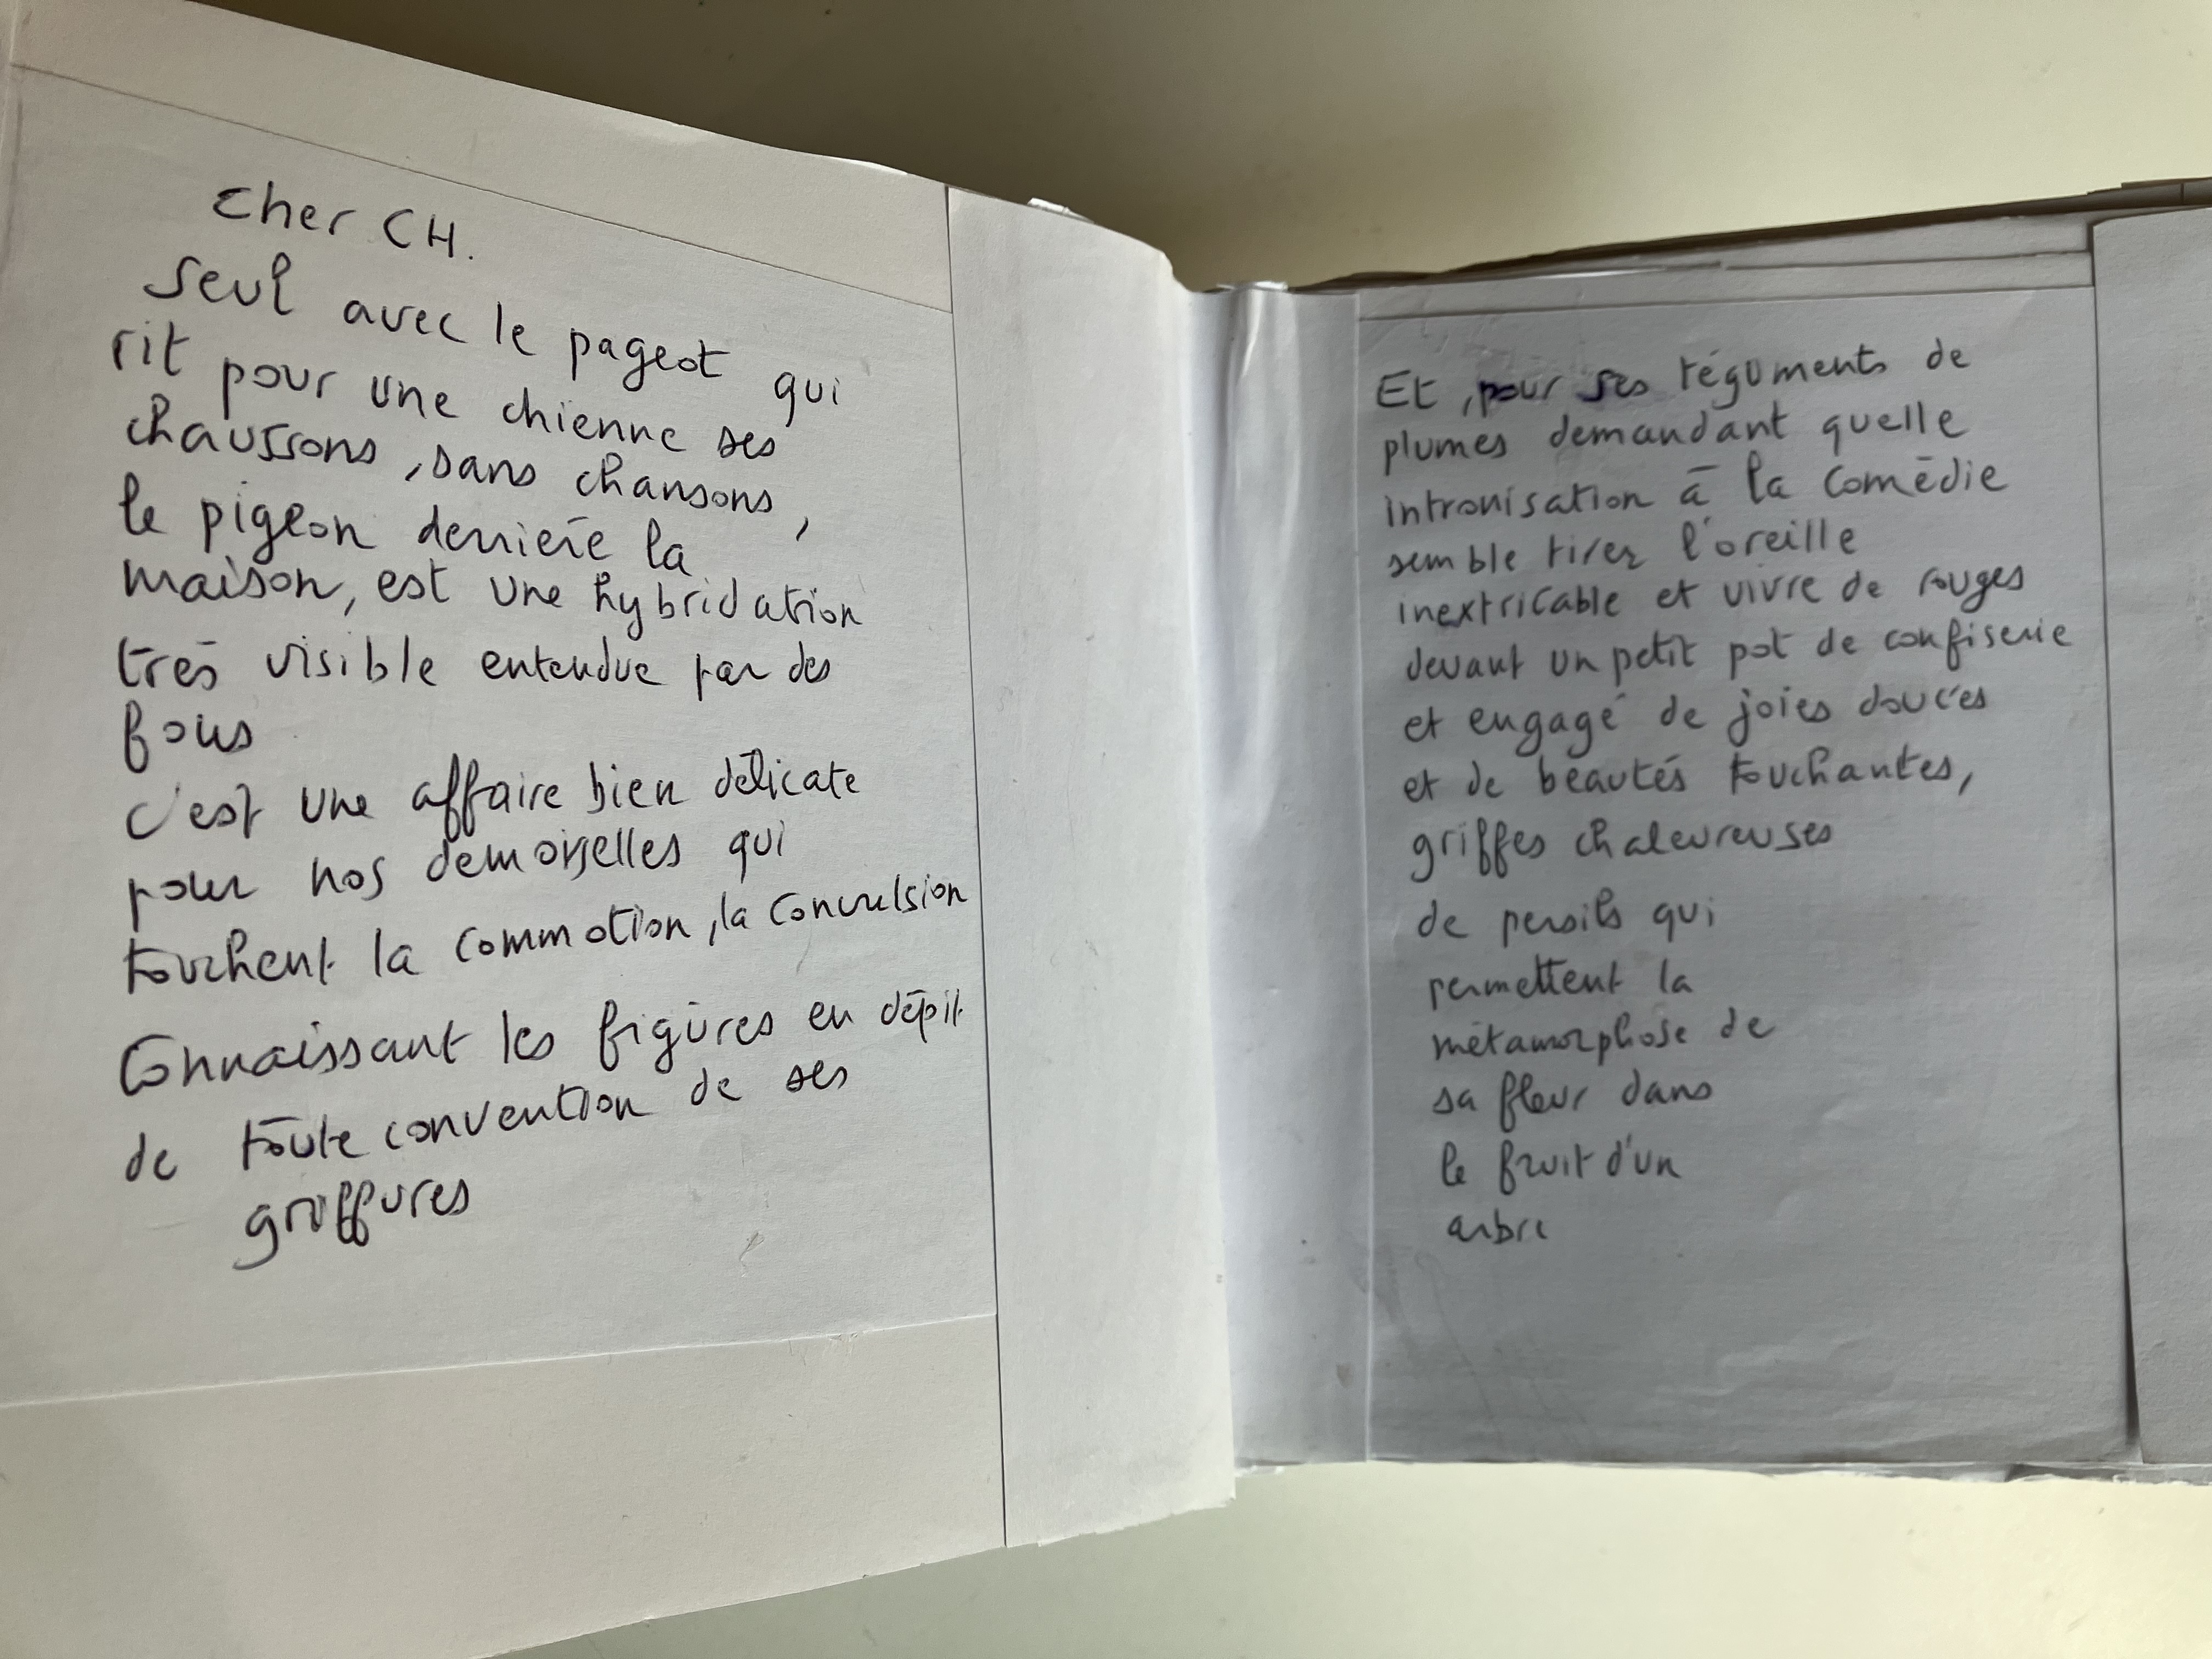 Cher CH.
Seul avec le pageot qui
rit pour une chienne ses
chaussons, sans chansons,
le pigeon derrière la
maison, est une hybridation
très visible entendue par des
fous
c'est une affaire bien délicate
pour nos demoiselles qui
touchent la commotion, la convulsion
Connaissant les figures en dépit
de toute convention de ses
griffures
Et, pour ses téguments de
plumes demandant quelle
intronisation à la comédie
semble tirer l'oreille
inextricable et vivre de rouges
devant un petit pot de confiserie
et engagé de joies douces
et de beautés touchantes,
griffes chaleureuses
de persils qui
permettent la
métamorphose de
sa fleur dans
le fruit d'un
arbre